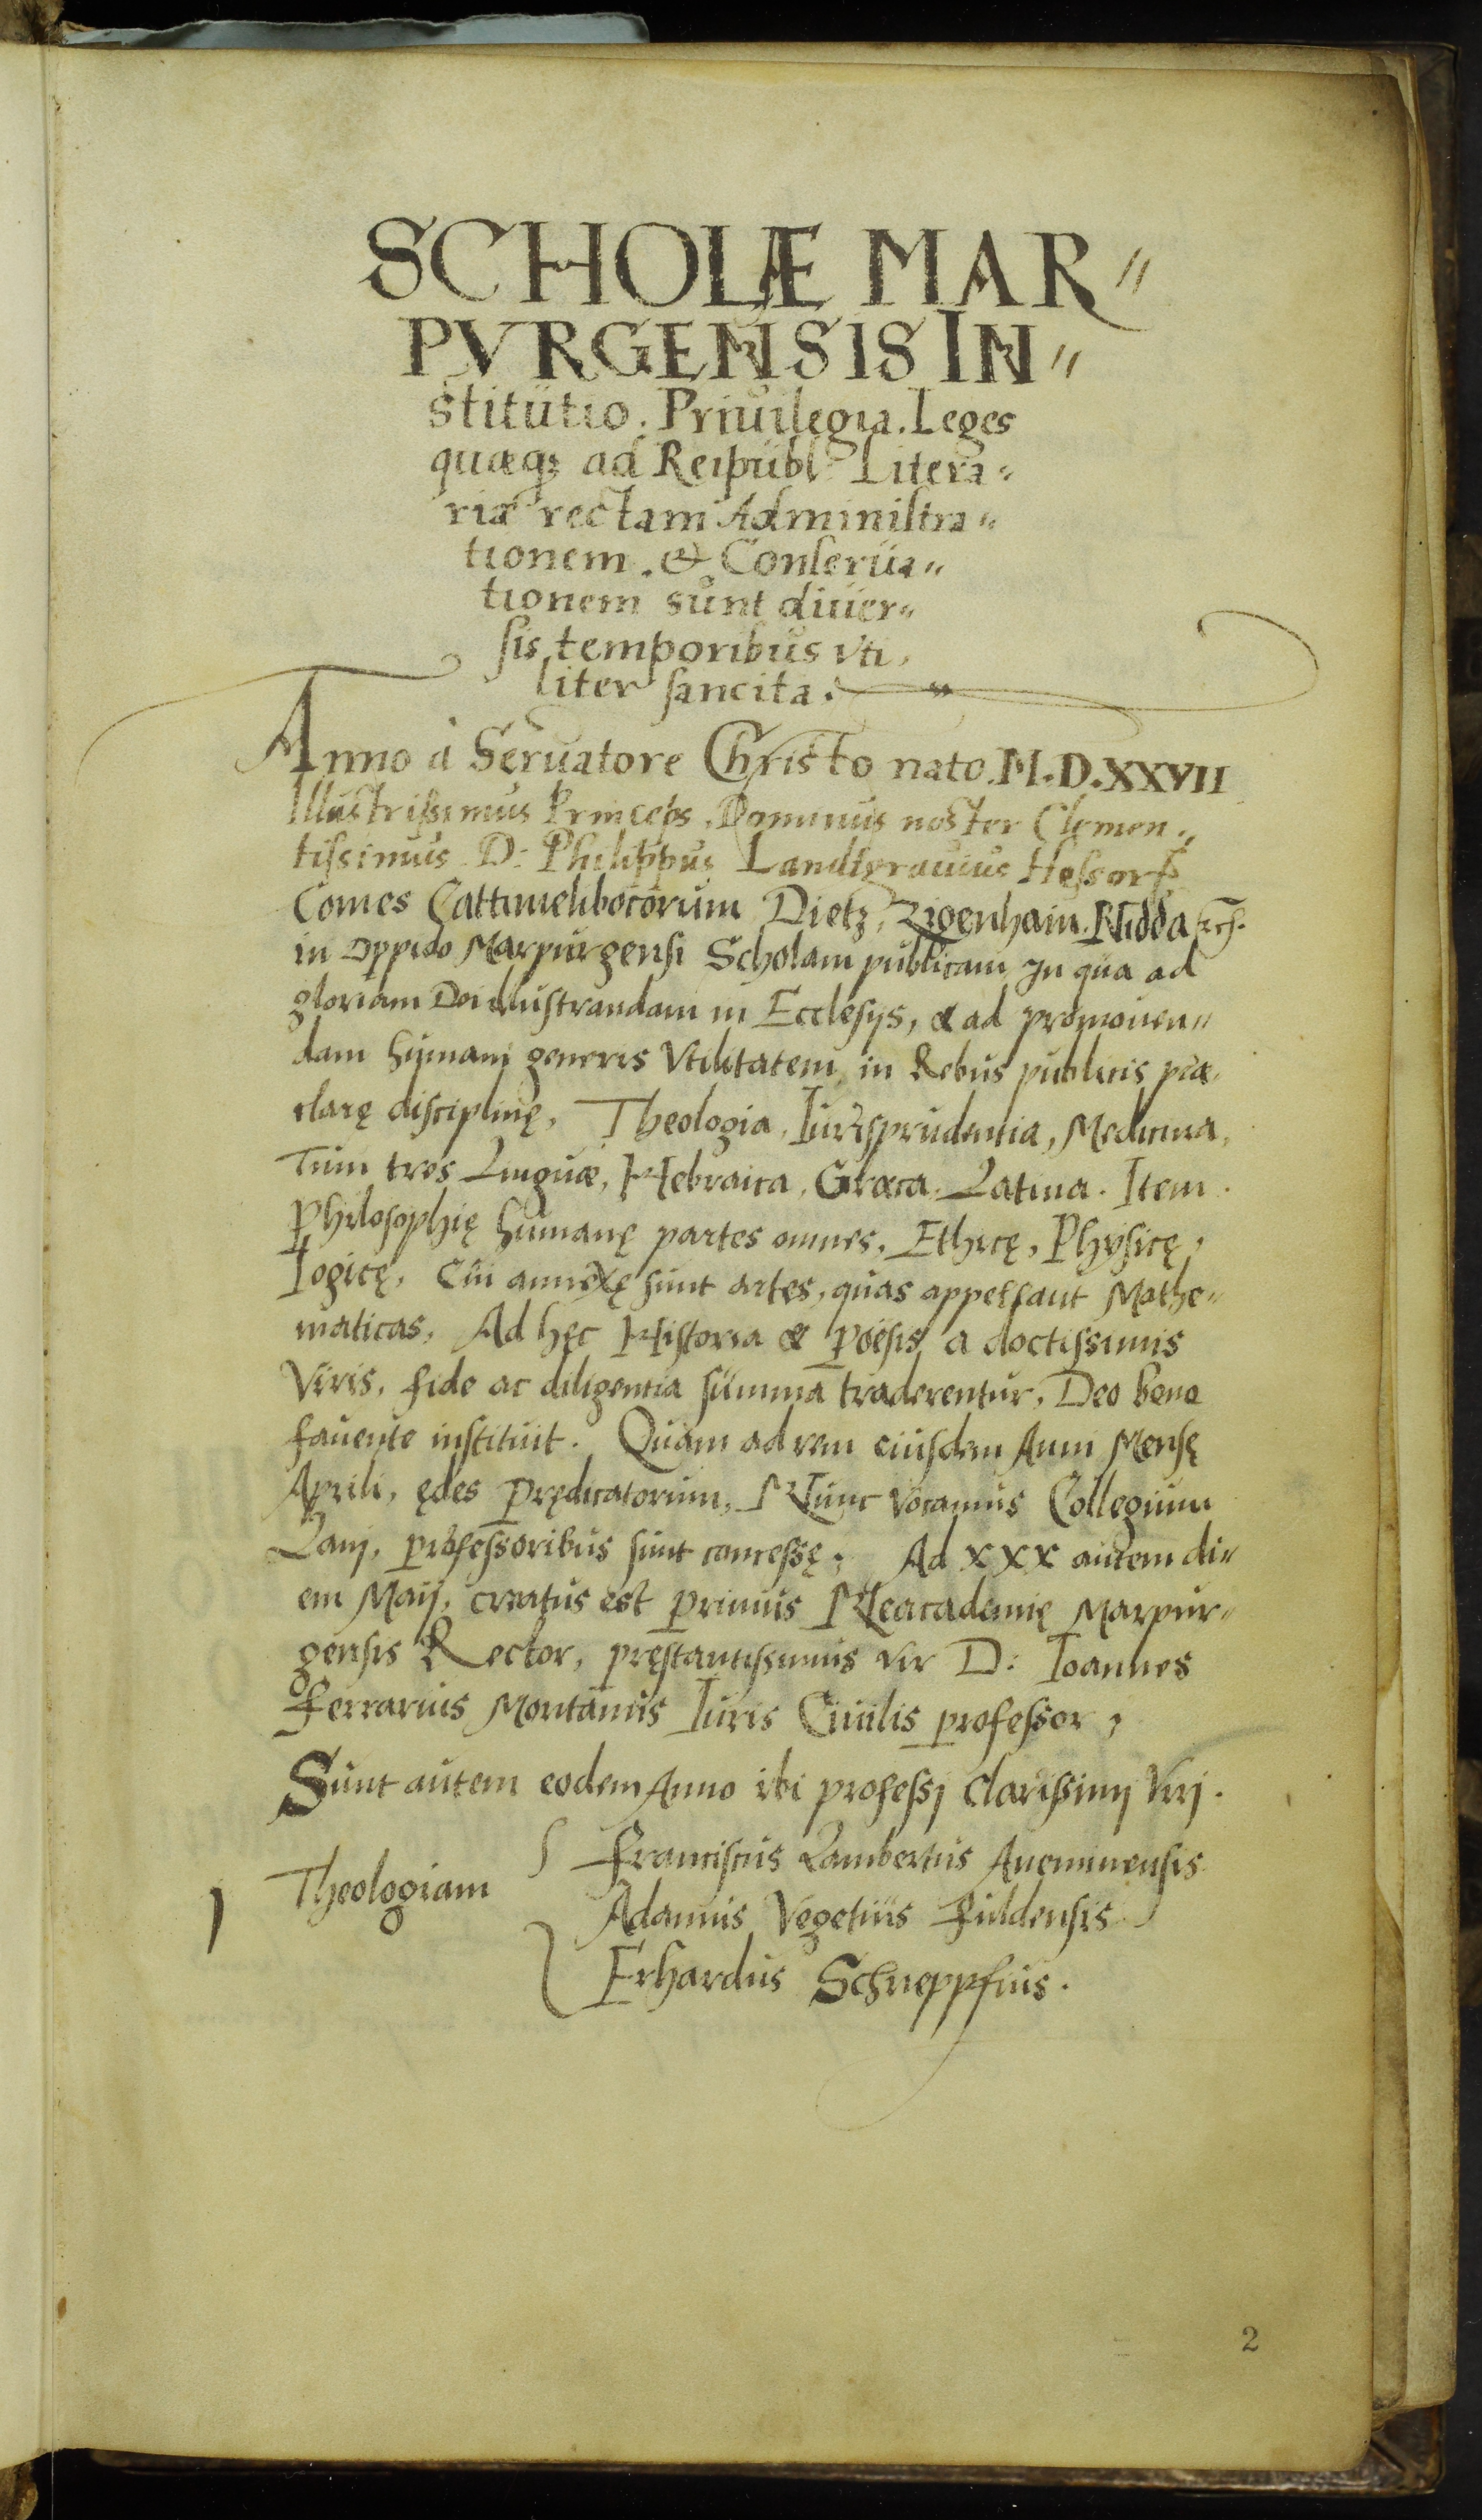 SCHOLÆ MAR〃
PVRGENSIS IN〃
stitutio. Priuilegia. Leges
quæq; ad Reipubl: Litera〃
riæ rectam Administra〃
tionem. & Conserua〃
tionem sunt diuer〃
sis temporibus vti,
liter sancita.
Anno à Seruatore Christo nato. M.D.XXVII
Illustrissimus Princeps, Dominus noster Clemen〃
tissimus D: Philippus Landtgrauius Hessorꝝ
Comes Cattimelibocorum Dietz, Zigenhain. Nidda
in oppido Marpurgensi Scholam publicam, In qua ad
gloriam Dei illustrandam in Ecclesijs, & ad promouen〃
dam humani generis Vtilitatem, in Rebus publicis præ,
clarę disciplinę, Theologia, Iurisprudentia, Medicina,
Tum tres Linguæ, Hebraica, Græca, Latina. Item.
Philosophię humanę partes omnes, Ethicę, Physicę,
Logicę, Cui annexę sunt artes, quas appellant Mathe〃
maticas, Ad hęc Historia & Poësis, a doctissimis
Viris, fide ac diligentia summa traderentur, Deo bene
fauente instituit. Quam ad rem eiusdem Anni Mensę
Aprili, ędes Prędicatorum, Nunc vocamus Collegium
Lani, professoribus sunt concessę, Ad XXX autem di〃
em Maij, creatus est primus Neacademię Marpur〃
gensis Rector, pręstantissimus vir D: Ioannes
Ferrarius Montanus Iuris Ciuilis professor,
Sunt autem eodem Anno ibi professj clarissimj Virj.
Theologiam
Franciscus Lambertus Aueninensis
Adamus Vegetius Fuldensis
Erhardus Schneppfius.
2